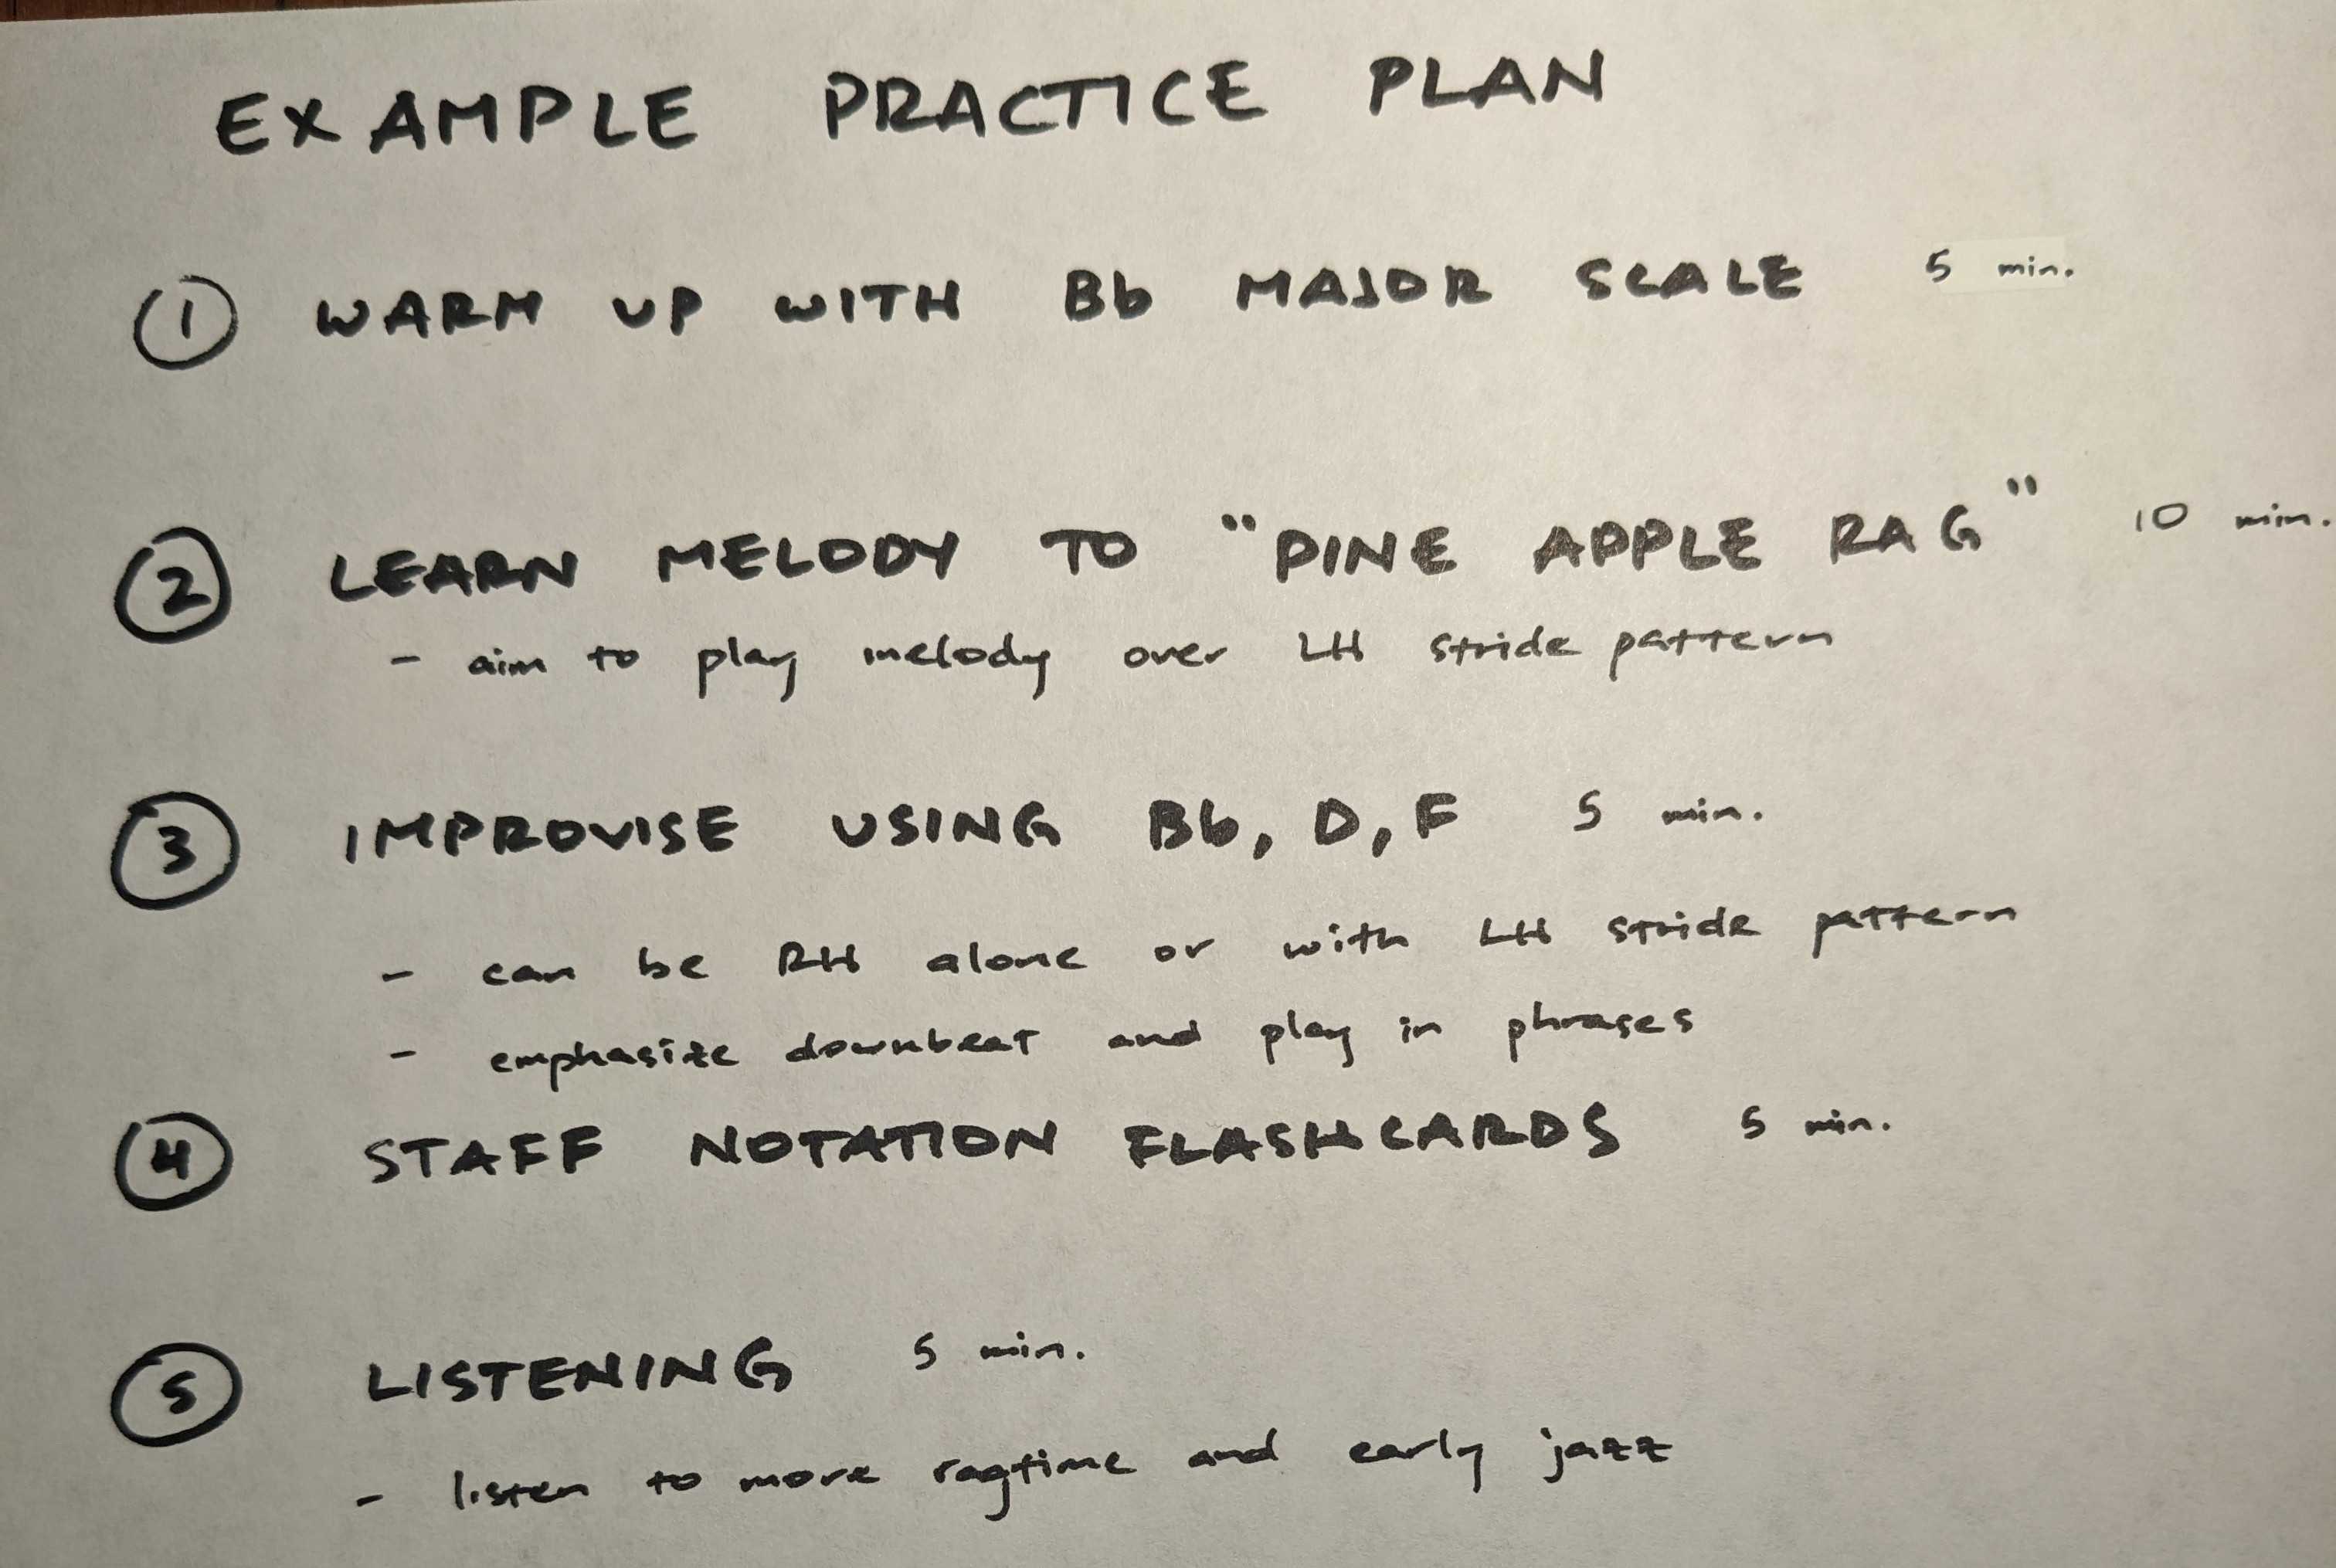 EXAMPLE PRACTICE PLAN
1 WARM UP WITH Bb MAJOR SCALE 5 min.
2 LEARN MELODY TO "PINE APPLE RAG" 10 min.
- aim to play melody over LH stride pattern
3 IMPROVISE USING Bb, D, F 5 min.
- can be RH alone or with LH stride pattern
- emphasize downbeat and play in phrases
4 STAFF NOTATION FLASHCARDS 5 min.
5 LISTENING 5 min.
- listen to more ragtime and early jazz